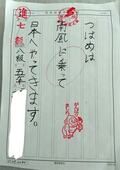 つばめは
南風に乗って
日本へやってきます。
進七級
八級 五年